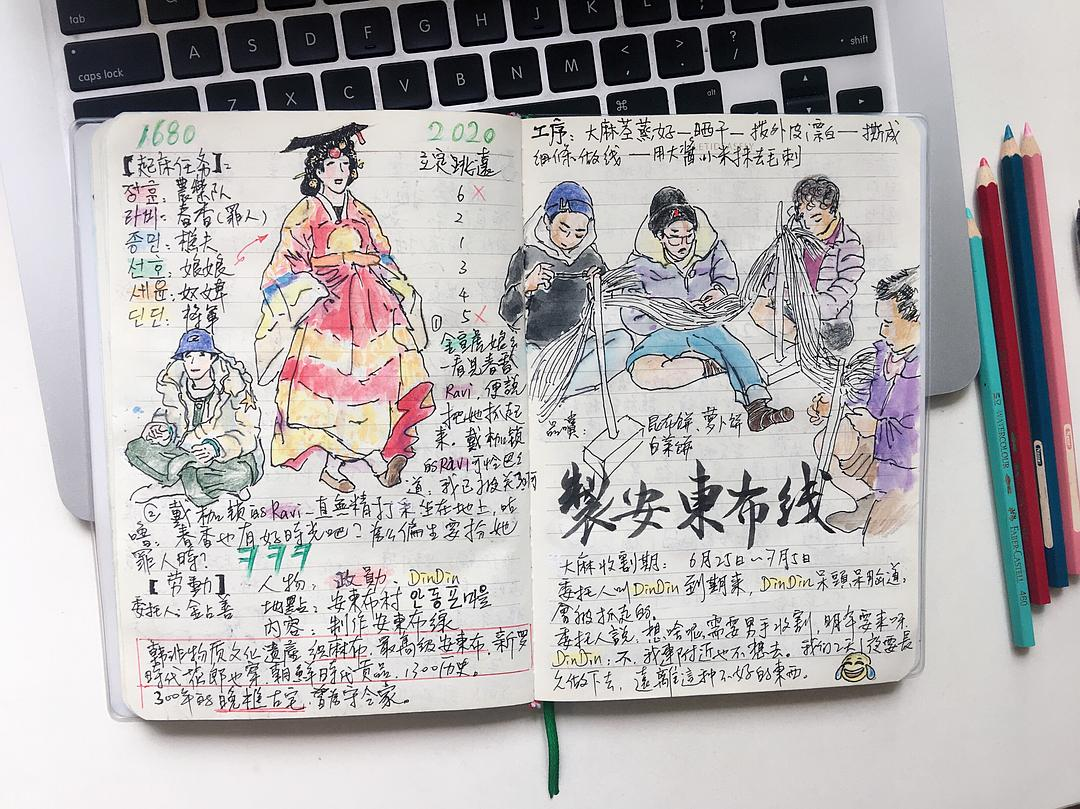 tab
A S D F G H J K L
caps lock
Z X C V B N M < , > . ? /
shift
⌘
alt
1680
2020
【起床任务】:
立定跳遠
장훈: 農樂队
6 ×
라비: 春香(罪人)
2
종민: 樵夫
1
선호: 娘娘
3
세윤: 奴婢
4
딘딘: 将軍
5 ×
①
金宣虎娘娘
一看見春香
Ravi,便說
把她抓起
來,戴枷锁
的Ravi可怜巴巴
道:我已被关
② 戴枷锁的Ravi一直無精打采坐在地上,咕
嚕:春香也有好時光吧?為什么偏生要扮她
罪人時?ㅋㅋㅋ
【劳動】 人物:政勳、DinDin
委托人:金占善 地點:安東布村 안동포마을
内容:制作安東布線
韓非物质文化遺產 级麻布,最高級安東布,新罗
時代花郎也穿,朝鮮時代貢品,1300历史。
300年的晚推古宅
工序:大麻荃蒸好—晒干—拨外皮漂白—撕成
细條做线—用大醬小米抹去毛刺
品嚐:
昆布餅、萝卜餅
白菜餅
製安東布线
大麻收割期:6月25日~7月5日
委托人叫DinDin到期來,DinDin呆頭呆脑道,
會被抓起的。
委托人說,想啥呢,需要男手收割,明年要来呀
DinDin:不,我連附近也不想去。我们2天1夜要長
久做下去,遠離這种不好的東西。
WATERCOLOUR
FABER-CASTELL